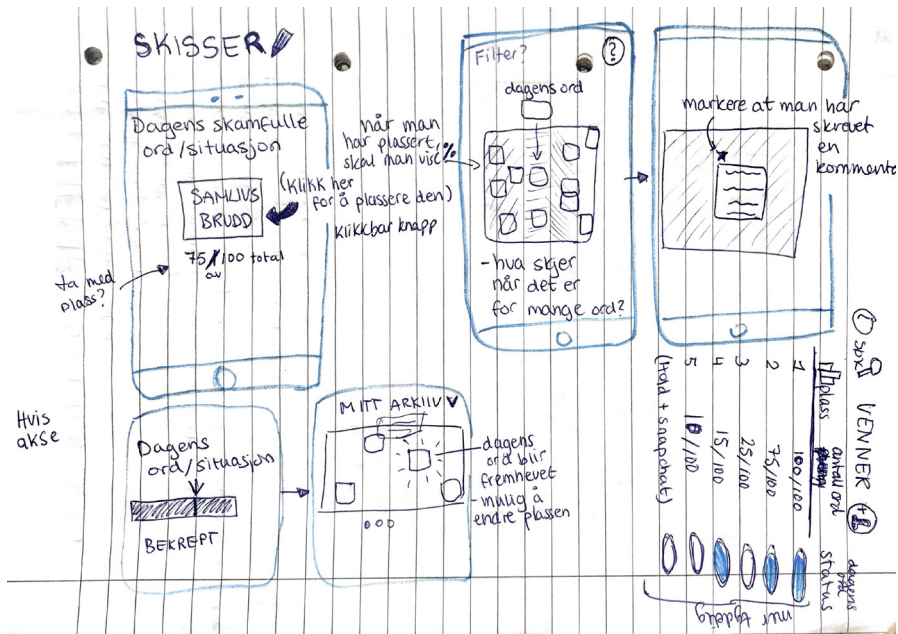 SKISSER
Dagens skamfulle
ord/situasjon
SAMLIVS
BRUDD
(Klikk her
for å plassere den)
klikkbar knapp
75/100 total
av
ta med
plass?
når man
har plassert,
skal man vise %
Filter?
?
dagens ord
- hva skjer
når det er
for mange ord?
markere at man har
skrevet
en
kommenta
Hvis
akse
Dagens
ord/situasjon
BEKREFT
MITT ARKIV
- dagens
ord blir
fremhevet
- mulig å
endre plassen
søk
VENNER
+
plass
antall ord
dagens
ord
status
1 100/100
2 75/100
3 25/100
4 15/100
5 10/100
(Hold + snapchat)
mer tydelig